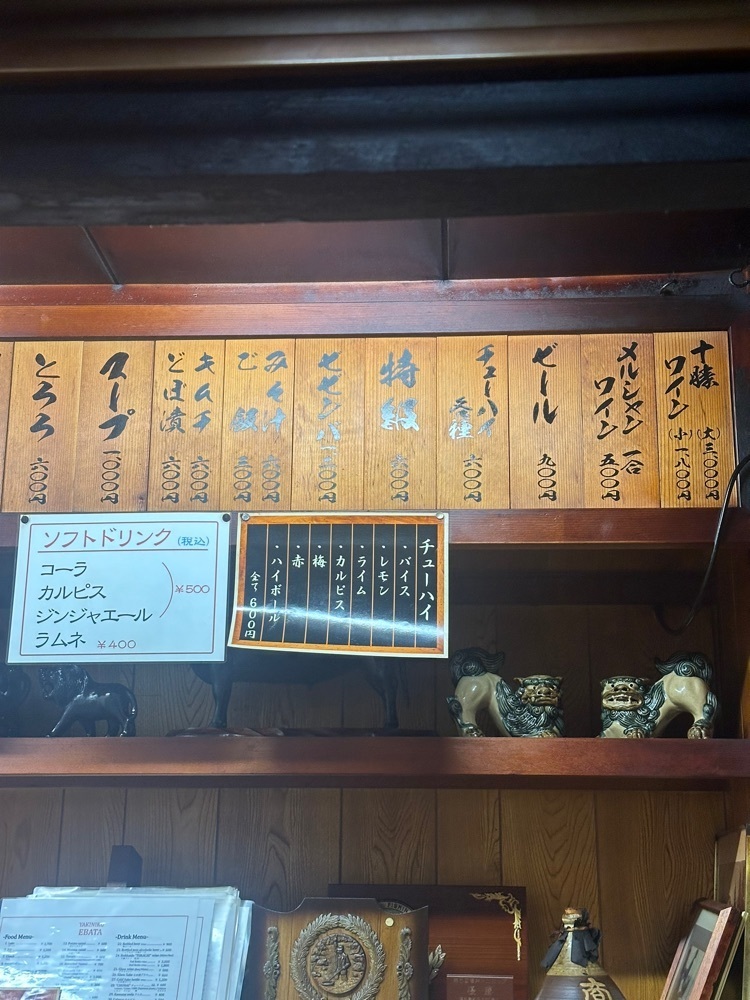 十勝
ワイン
(大)三〇〇〇円
(小)一八〇〇円
メルシャン
ワイン
一合
五〇〇円
ビール
九〇〇円
チューハイ
各種
六〇〇円
特級
六〇〇円
みそ汁
六〇〇円
ご飯
三〇〇円
キムチ
六〇〇円
どぼ漬
六〇〇円
スープ
一〇〇〇円
とろろ
六〇〇円
ソフトドリンク(税込)
コーラ
カルピス
ジンジャエール
¥500
ラムネ ¥400
チューハイ
・バイス
・レモン
・ライム
・カルピス
・梅
・赤
・ハイボール
全て600円
-Food Menu-
EBATA
-Drink Menu-